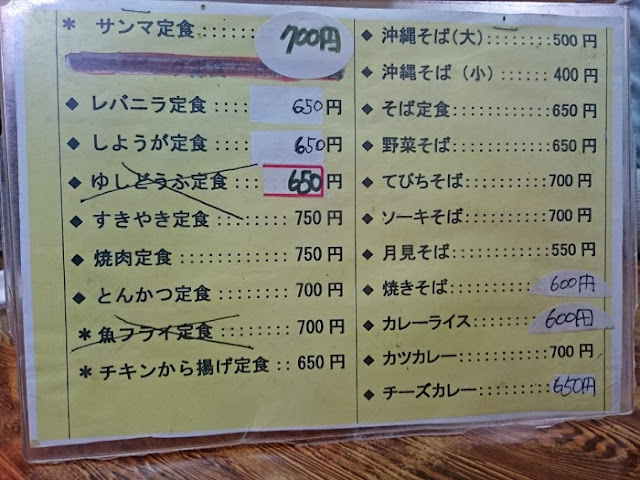 * サンマ定食 :::::: 700円
◆ レバニラ定食 :::: 650円
◆ しようが定食 :::: 650円
◆ ゆしどうふ定食 ::: 650円
◆ すきやき定食 :::::: 750円
◆ 焼肉定食 :::::::: 750円
◆ とんかつ定食 :::::: 700円
* 魚フライ定食 :::::: 700円
* チキンから揚げ定食 :: 650円
◆ 沖縄そば(大) :::::: 500円
◆ 沖縄そば (小) :::::: 400円
◆ そば定食 ::::::::: 650円
◆ 野菜そば ::::::::: 650円
◆ てびちそば :::::::: 700円
◆ ソーキそば :::::::: 700円
◆ 月見そば ::::::::: 550円
◆ 焼きそば ::::::::: 600円
◆ カレーライス ::::::: 600円
◆ カツカレー :::::::: 700円
◆ チーズカレー ::::::: 650円